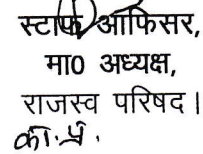 स्टाफ आफिसर,
मा0 अध्यक्ष,
राजस्व परिषद।